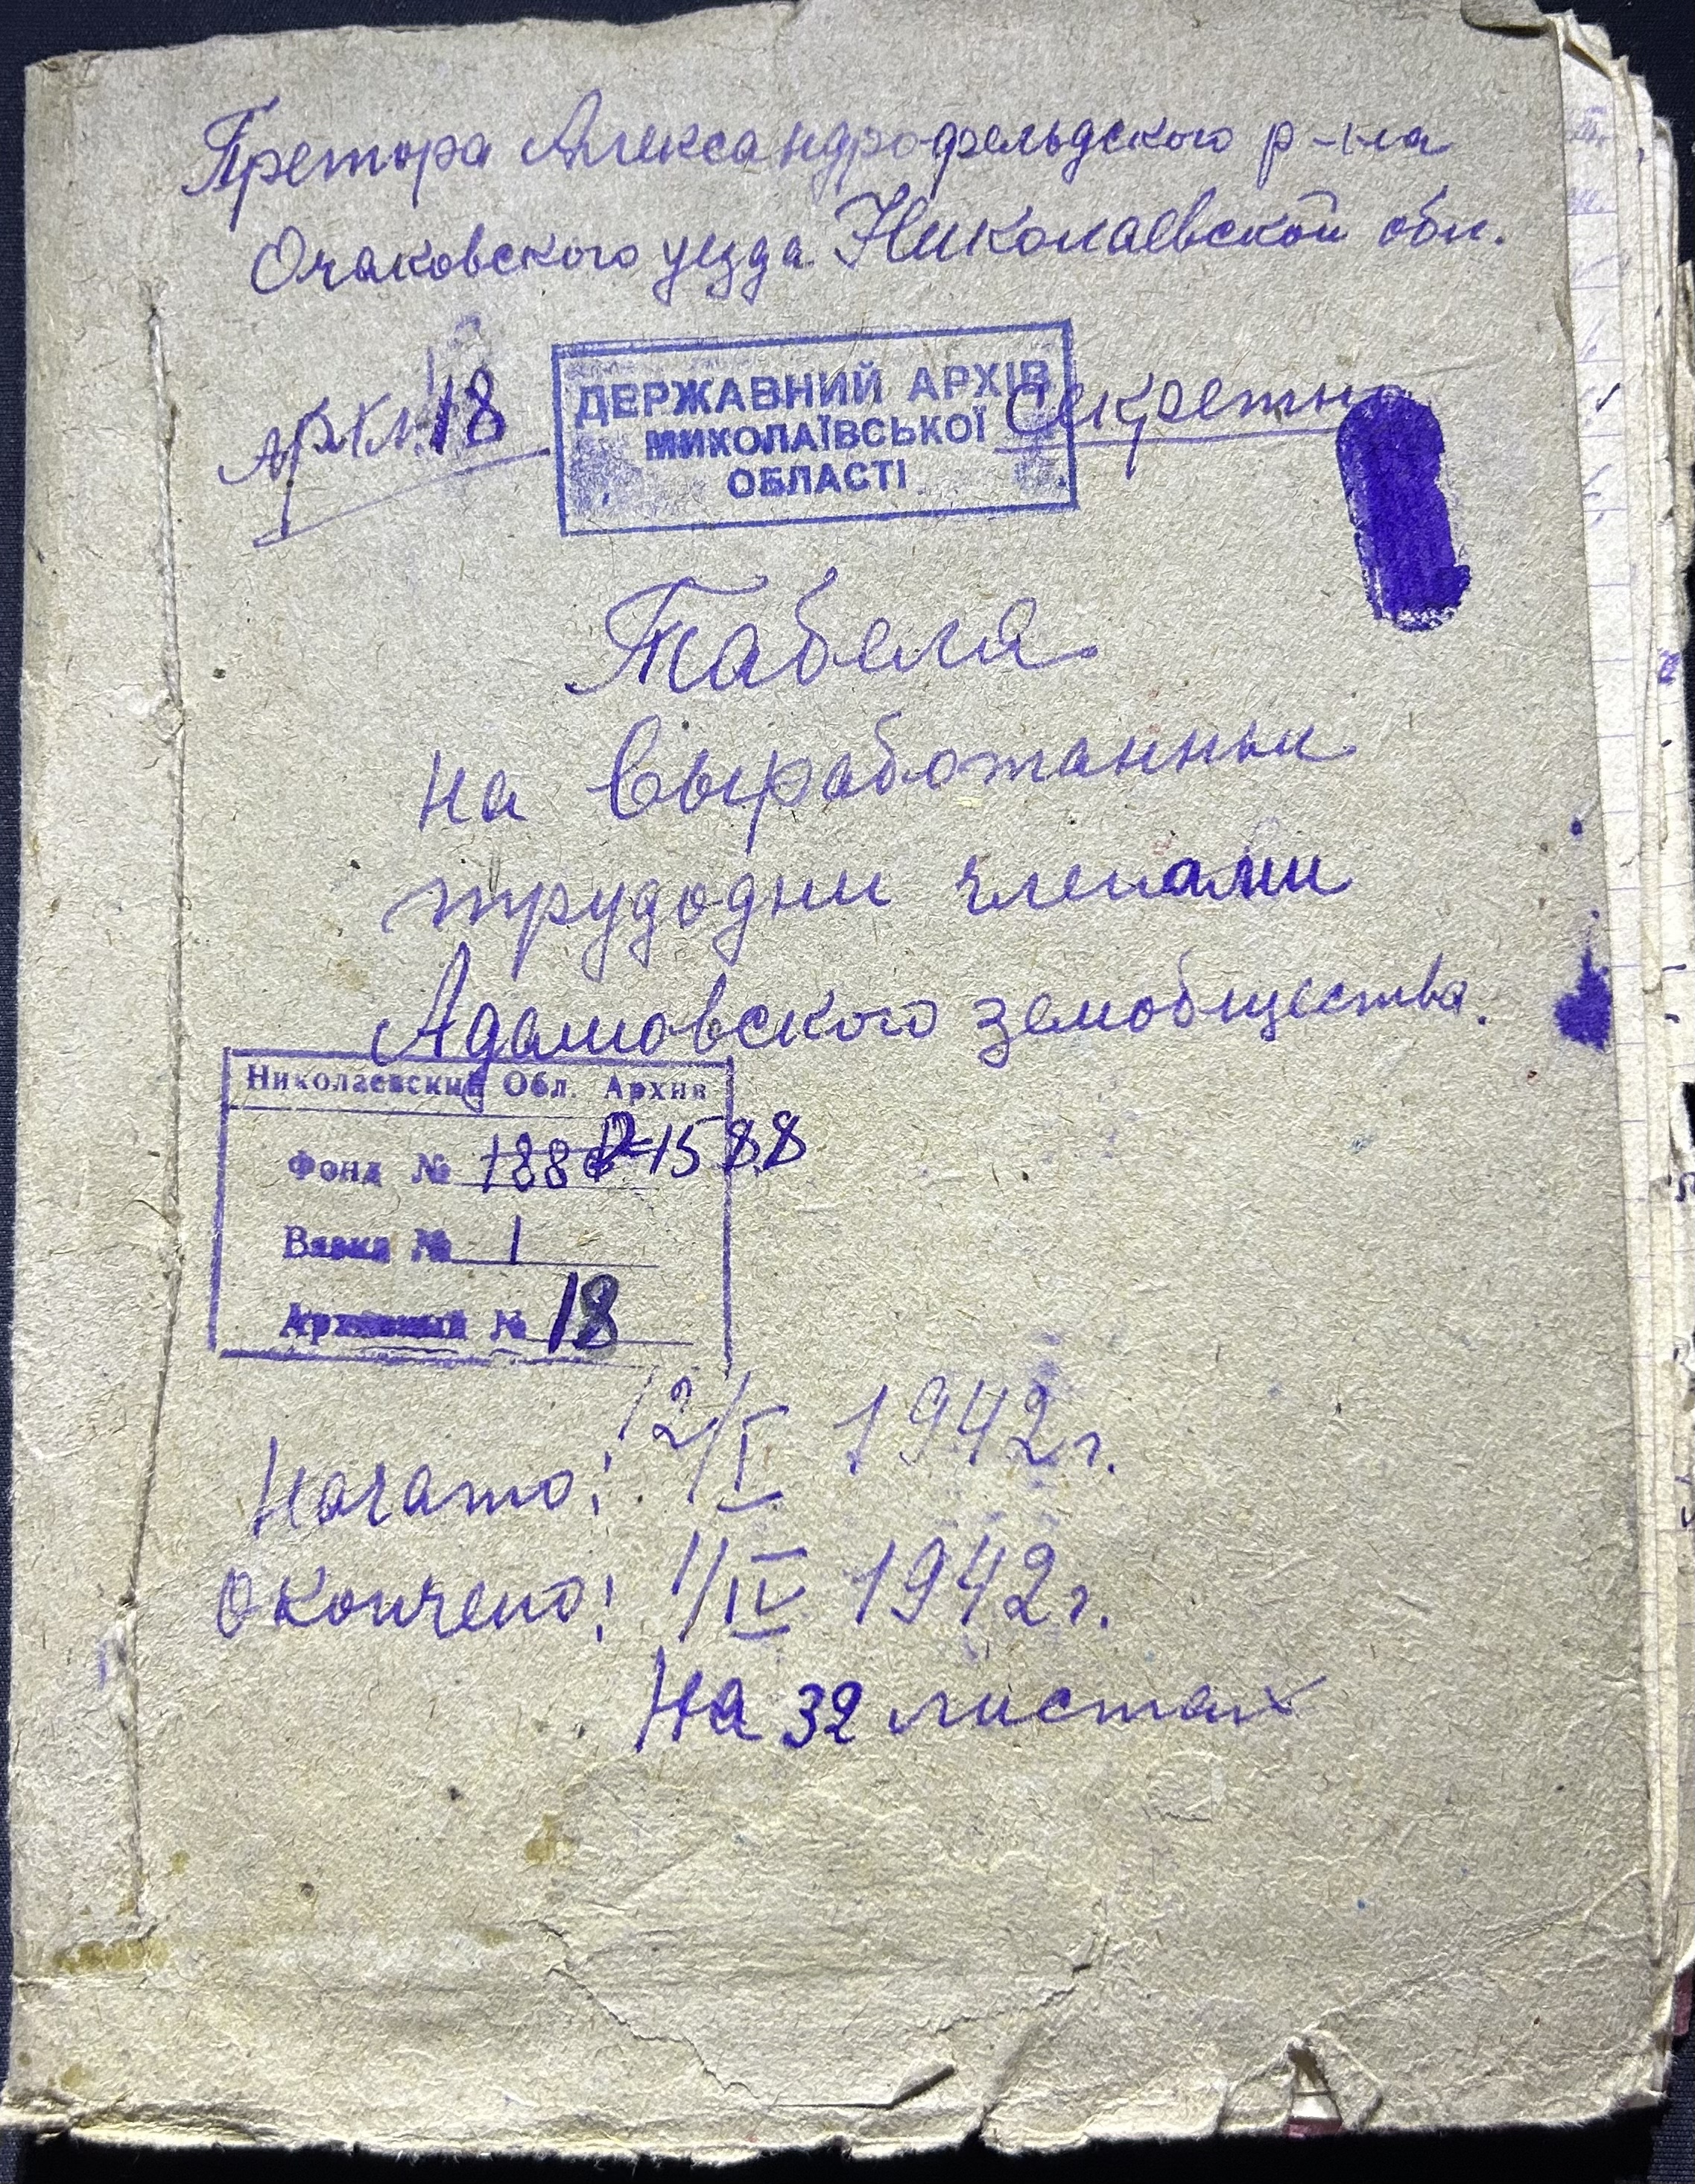 Претора Александрофельдского р-на
Очаковского уезда Николаевской обл.
арх № 18
ДЕРЖАВНИЙ АРХІВ
МИКОЛАЇВСЬКОЇ
ОБЛАСТІ
Секретно
Табеля
на выработанные
трудодни членами
Адамовского земобщества.
Николаевский Обл. Архив
Фонд № Р-1588
Вязка № 1
Архивный № 18
Начато: 12/I 1942 г.
Окончено: 1/IV 1942 г.
На 32 листах